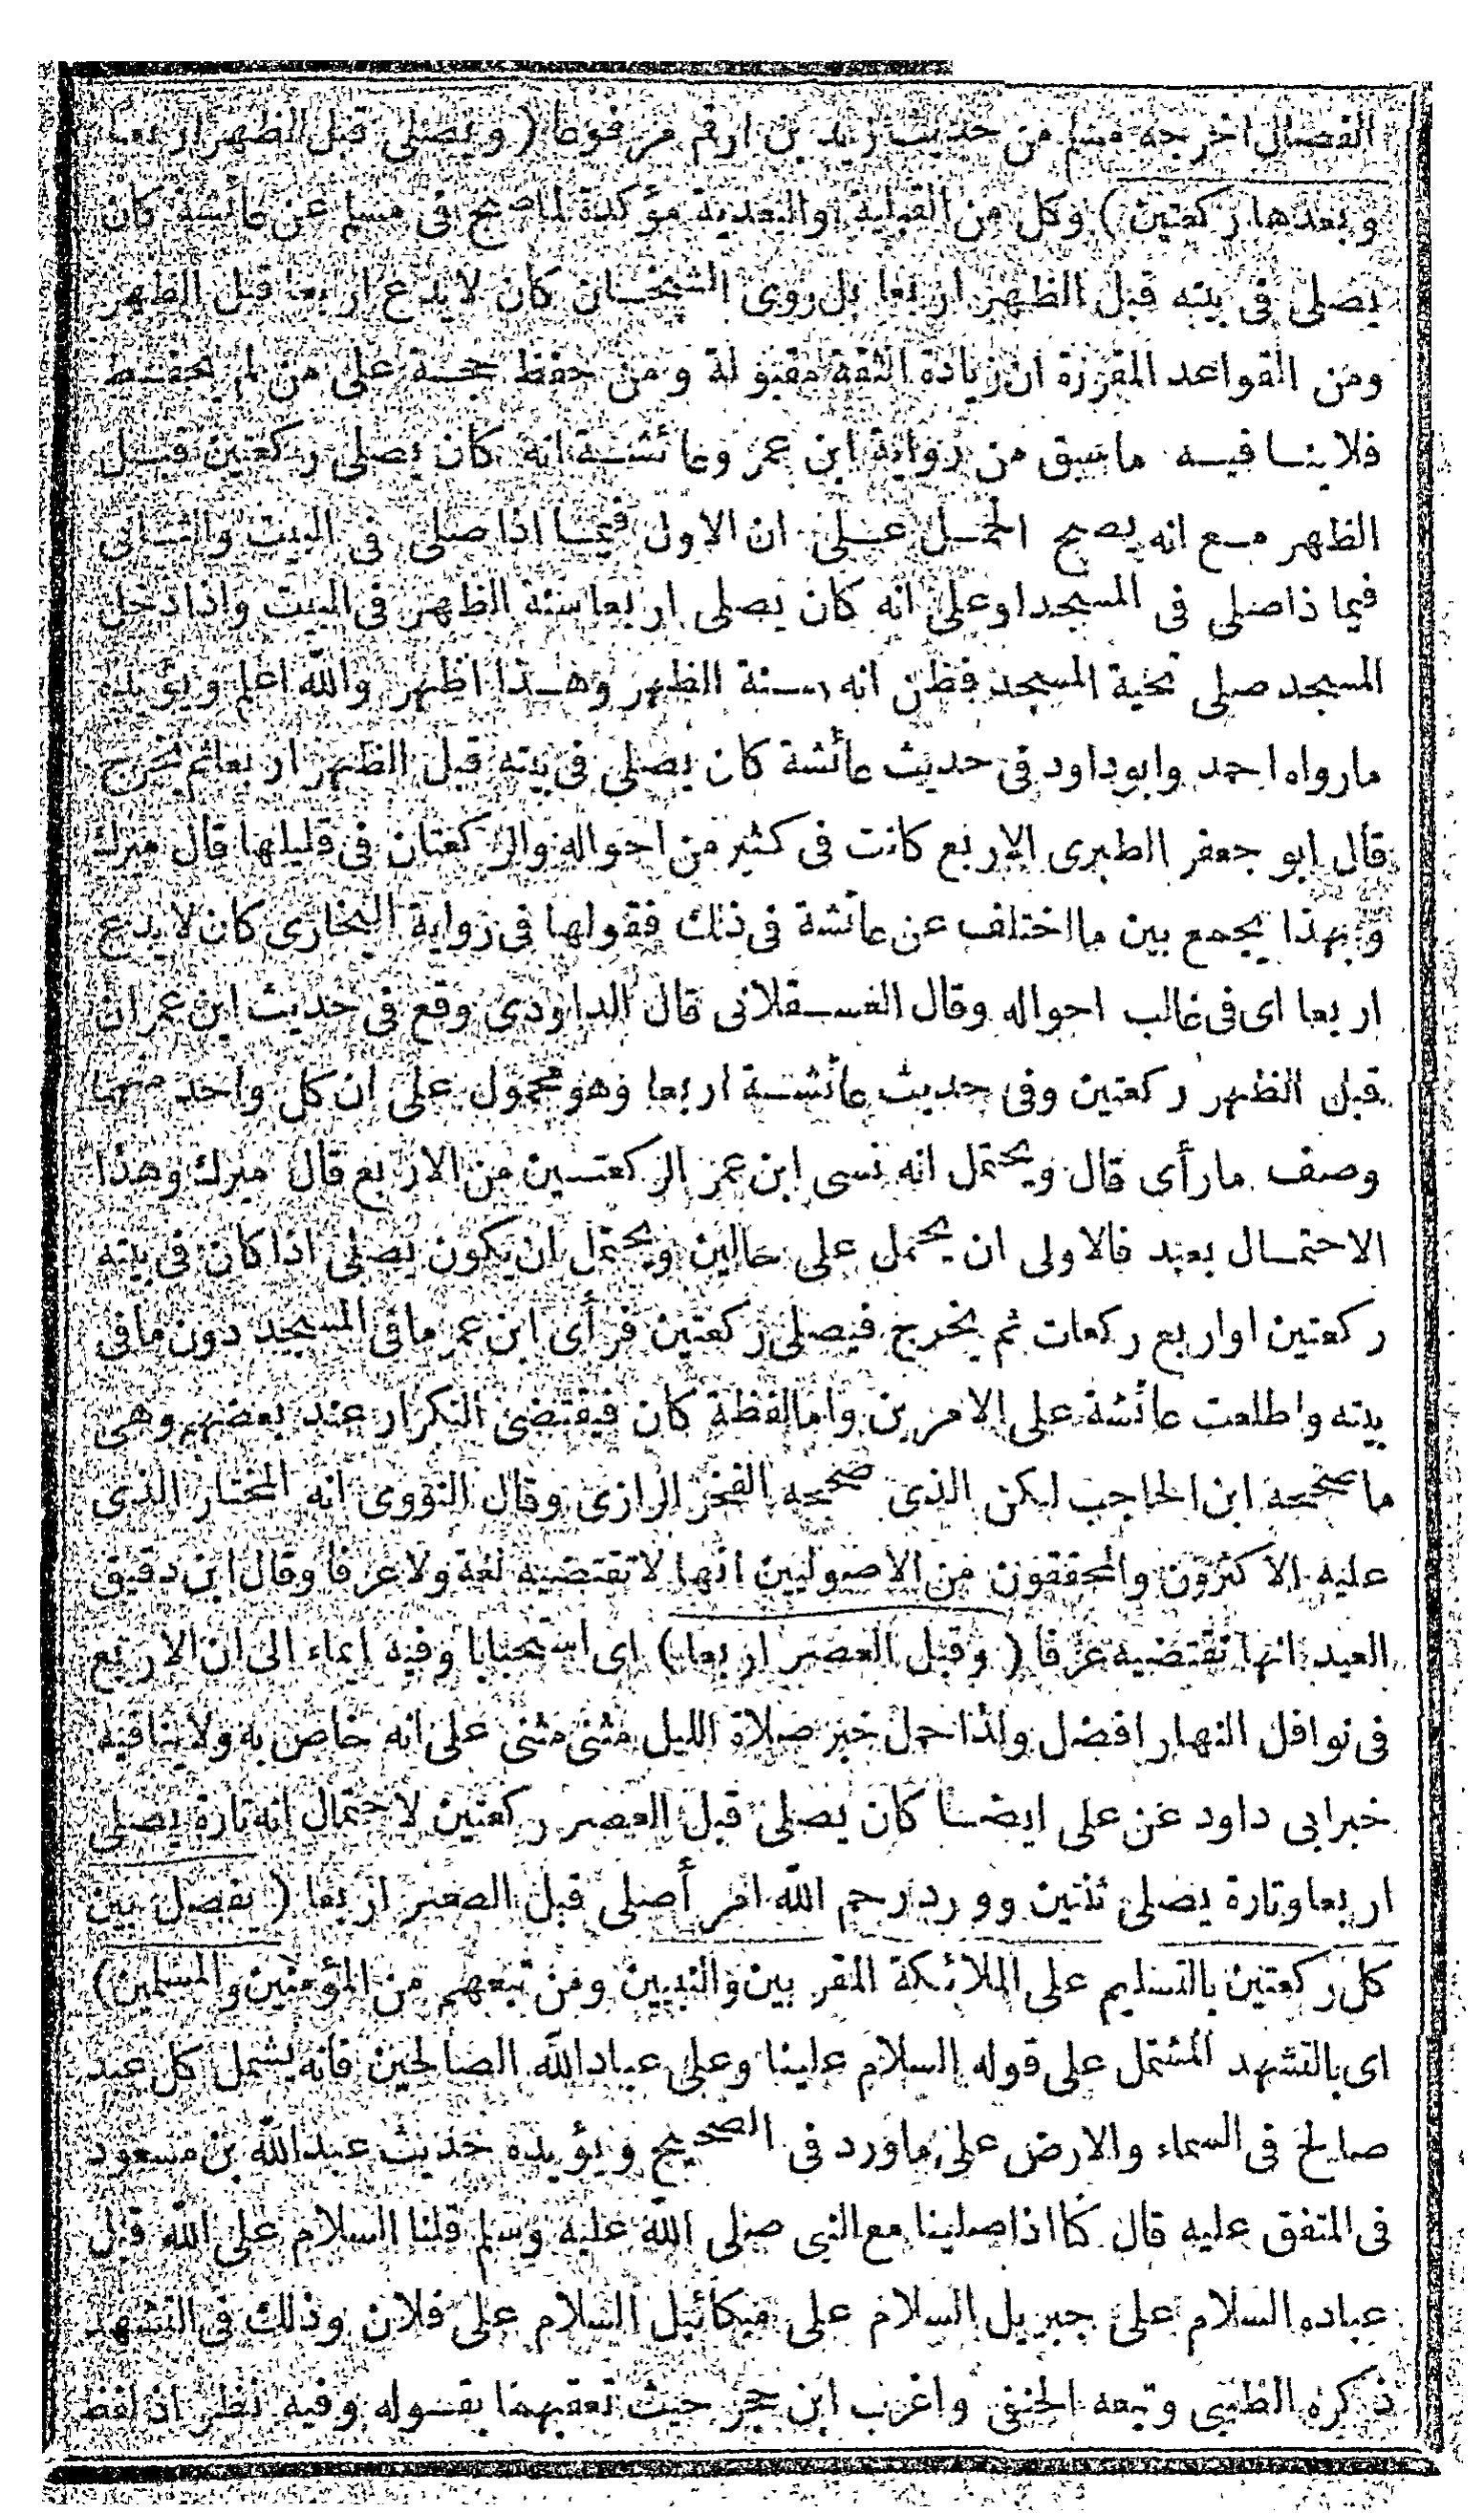 الفصال اخرجه مسلم من حديث زيد بن ارقم مرفوعا ( ويصلى قبل الظهر اربعا
وبعدها ركعتين ) وكل من القبلية والبعدية مؤكدة لما صح فى مسلم عن عائشة كان
يصلى فى بيته قبل الظهر اربعا بل روى الشيخان كان لا يدع اربعا قبل الظهر
ومن القواعد المقررة ان زيادة الثقة مقبولة ومن حفظ حجة على من لم يحفظ
فلا ينافيه ماسبق من رواية ابن عمر وعائشة انه كان يصلى ركعتين قبل
الظهر مع انه يصح الحمل على ان الاول فيما اذا صلى فى البيت والثانى
فيما ذاصلى فى المسجد اوعلى انه كان يصلى اربعا سنة الظهر فى البيت واذا دخل
المسجد صلى تحية المسجد فظن انه سنة الظهر وهذا اظهر والله اعلم ويؤيده
مارواه احمد وابوداود فى حديث عائشة كان يصلى فى بيته قبل الظهر اربعا ثم يخرج
قال ابو جعفر الطبرى الاربع كانت فى كثير من احواله والركعتان فى قليلها قال ميرك
وبهذا يجمع بين مااختلف عن عائشة فى ذلك فقولها فى رواية البخارى كان لا يدع
اربعا اى فى غالب احواله وقال العسقلانى قال الداودى وقع فى حديث ابن عمر ان
قبل الظهر ركعتين وفى حديث عائشة اربعا وهو محمول على ان كل واحد منهما
وصف مارأى قال ويحتمل انه نسى ابن عمر الركعتين من الاربع قال ميرك وهذا
الاحتمال بعيد فالاولى ان يحمل على حالين ويحتمل ان يكون يصلى اذا كان فى بيته
ركعتين اواربع ركعات ثم يخرج فيصلى ركعتين فرأى ابن عمر مافى المسجد دون مافى
بيته واطلعت عائشة على الامرين وامالفظة كان فيقتضى التكرار عند بعضهم وهى
ماصححه ابن الحاجب لكن الذى صححه الفخر الرازى وقال النووى انه المختار الذى
عليه الاكثرون والمحققون من الاصوليين انها لاتقتضيه لغة ولاعرفا وقال ابن دقيق
العيد انها تقتضيه عرفا ( وقبل العصر اربعا ) اى استحبابا وفيه ايماء الى ان الاربع
فى نوافل النهار افضل ولذا حمل خبر صلاة الليل مثنى مثنى على انه خاص به ولاينافيه
خبرابى داود عن على ايضا كان يصلى قبل العصر ركعتين لاحتمال انه تارة يصلى
اربعا وتارة يصلى ثنتين وورد رحم الله امر أصلى قبل الصعر اربعا ( يفصل بين
كل ركعتين بالتسليم على الملائكة المقربين والنبيين ومن تبعهم من المؤمنين والمسلمين )
اى بالتشهد المشتمل على قوله السلام علينا وعلى عبادالله الصالحين فانه يشمل كل عبد
صالح فى السماء والارض على ماورد فى الصحيح ويؤيده حديث عبدالله بن مسعود
فى المتفق عليه قال كنا اذا صلينا مع النبى صلى الله عليه وسلم قلنا السلام على الله قبل
عباده السلام على جبريل السلام على ميكائيل السلام على فلان وذلك فى التشهد
ذكره الطيبى وتبعه الحنفى واغرب ابن حجر حيث تعقبهما بقوله وفيه نظر اذ لفظ